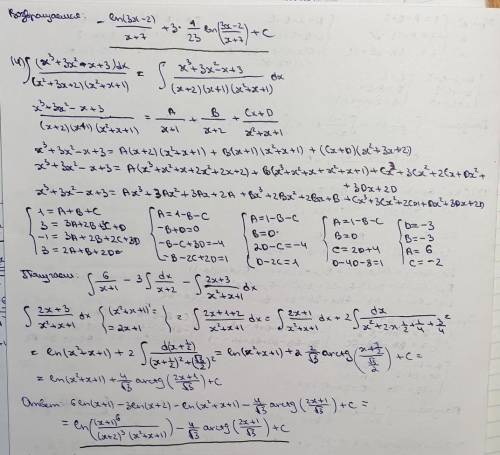 Возвращаемся: - ln(3x-2)/(x+7) + 3 · 1/23 ln((3x-2)/(x+7)) + C
(4) ∫ (x³+3x²-x+3)dx/((x²+3x+2)(x²+x+1)) = ∫ (x³+3x²-x+3)/((x+2)(x+1)(x²+x+1)) dx
(x³+3x²-x+3)/((x+2)(x+1)(x²+x+1)) = A/(x+1) + B/(x+2) + (Cx+D)/(x²+x+1)
x³+3x²-x+3 = A(x+2)(x²+x+1) + B(x+1)(x²+x+1) + (Cx+D)(x²+3x+2)
x³+3x²-x+3 = A(x³+x²+x+2x²+2x+2) + B(x³+x²+x+x²+x+1) + Cx³+3Cx²+2Cx+Dx²+
+3Dx+2D
x³+3x²-x+3 = Ax³+3Ax²+3Ax+2A+Bx³+2Bx²+2Bx+B+Cx³+3Cx²+2Cx+Dx²+3Dx+2D
{1=A+B+C {A=1-B-C {A=1-B-C {A=1-B-C {D=-3
3=3A+2B+3C+D -B+D=0 B=D B=D B=-3
-1=3A+2B+2C+3D -B-C+3D=-4 2D-C=-4 C=2D+4 A=6
3=2A+B+2D -B-2C+2D=1 D-2C=1 D-4D-8=1 C=-2
Получаем: ∫ 6/(x+1) - 3∫ dx/(x+2) - ∫ (2x+3)/(x²+x+1) dx
∫ (2x+3)/(x²+x+1) dx {(x²+x+1)' = 2x+1} = ∫ (2x+1+2)/(x²+x+1) dx = ∫ (2x+1)/(x²+x+1) + 2∫ dx/(x²+2x·1/2+1/4+3/4) =
= ln(x²+x+1) + 2∫ d(x+1/2)/((x+1/2)²+(√3/2)²) = ln(x²+x+1) + 2 · 2/√3 arctg((x+1/2)/(√3/2)) + C =
= ln(x²+x+1) + 4/√3 arctg((2x+1)/√3) + C
Ответ: 6ln(x+1) - 3ln(x+2) - ln(x²+x+1) - 4/√3 arctg((2x+1)/√3) + C =
= ln((x+1)⁶/((x+2)³(x²+x+1))) - 4/√3 arctg((2x+1)/√3) + C